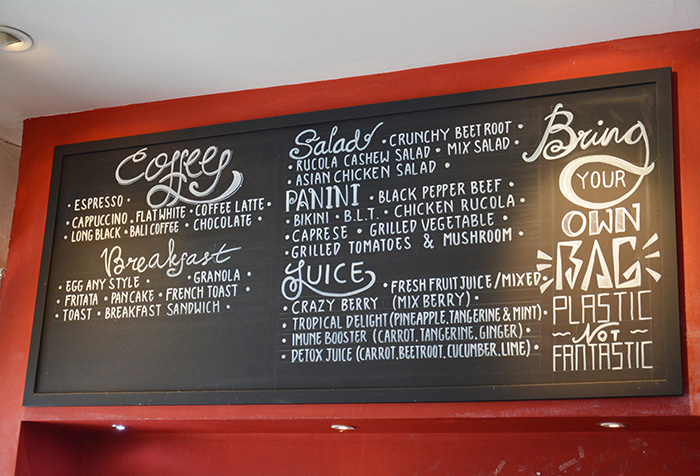 Coffee
· ESPRESSO ·
CAPPUCINO · FLAT WHITE · COFFEE LATTE ·
LONG BLACK · BALI COFFEE · CHOCOLATE ·
Breakfast
EGG ANY STYLE · GRANOLA ·
· FRITATA · PAN CAKE · FRENCH TOAST ·
· TOAST · BREAKFAST SANDWICH ·
Salad · CRUNCHY BEETROOT ·
· RUCOLA CASHEW SALAD · MIX SALAD ·
· ASIAN CHICKEN SALAD ·
PANINI · BLACK PEPPER BEEF ·
· BIKINI · B.L.T. · CHICKEN RUCOLA ·
· CAPRESE · GRILLED VEGETABLE ·
· GRILLED TOMATOES & MUSHROOM ·
JUICE · FRESH FRUIT JUICE / MIXED ·
· CRAZY BERRY (MIX BERRY) ·
· TROPICAL DELIGHT (PINEAPPLE, TANGERINE & MINT) ·
· IMUNE BOOSTER (CARROT, TANGERINE, GINGER) ·
· DETOX JUICE (CARROT, BEETROOT, CUCUMBER, LIME) ·
Bring
YOUR
OWN
BAG
PLASTIC
~ Not ~
FANTASTIC